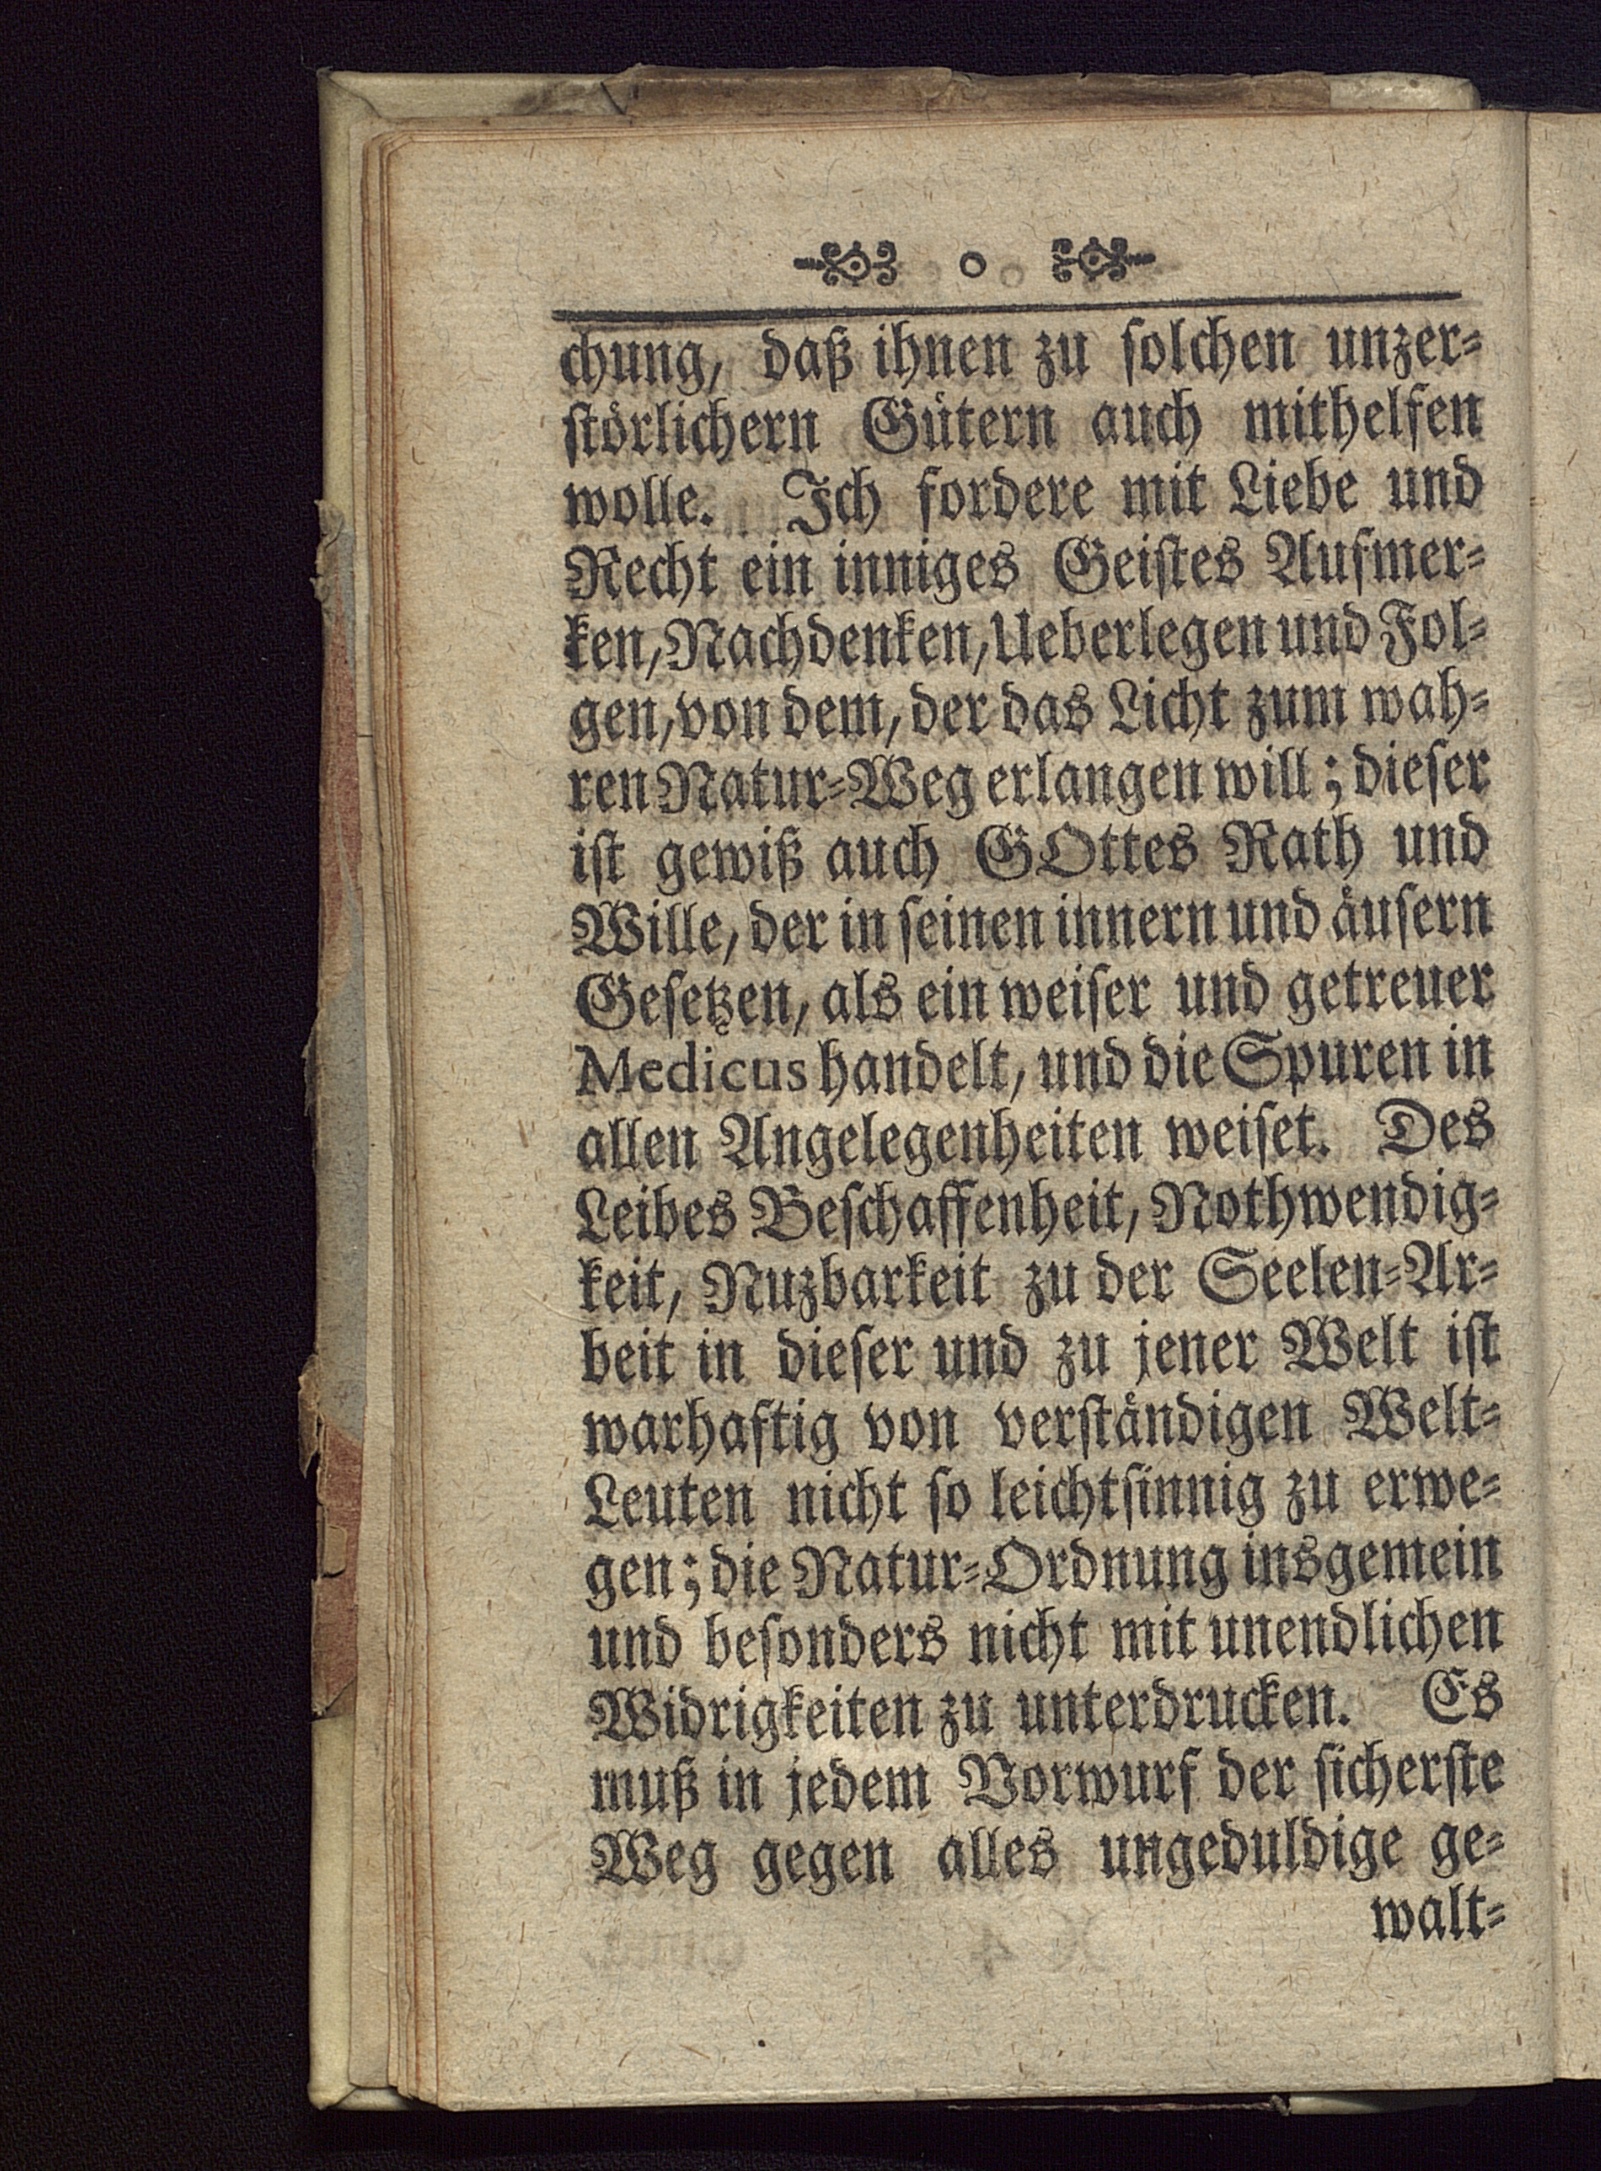 o
chung, daß ihnen zu solchen unzer⸗
störlichern Gütern auch mithelfen
wolle. Ich fordere mit Liebe und
Recht ein inniges Geistes Aufmer⸗
ken, Nachdenken, Ueberlegen und Fol⸗
gen, von dem, der das Licht zum wah⸗
ren Natur⸗Weg erlangen will; dieser
ist gewiß auch GOttes Rath und
Wille, der in seinen innern und äusern
Gesetzen, als ein weiser und getreuer
Medicus handelt, und die Spuren in
allen Angelegenheiten weiset. Des
Leibes Beschaffenheit, Nothwendig⸗
keit, Nuzbarkeit zu der Seelen⸗Ar⸗
beit in dieser und zu jener Welt ist
warhaftig von verständigen Welt⸗
Leuten nicht so leichtsinnig zu erwe⸗
gen; die Natur⸗Ordnung insgemein
und besonders nicht mit unendlichen
Widrigkeiten zu unterdrucken. Es
muß in jedem Vorwurf der sicherste
Weg gegen alles ungeduldige ge⸗
walt⸗